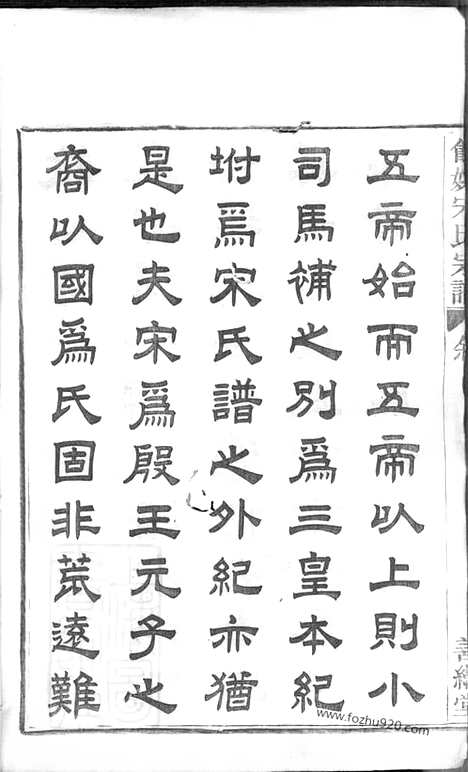 五帝始而五帝以上則小
司馬補之別為三皇本紀
坿為宋氏譜之外紀亦猶
是也夫宋為殷王元子之
裔以國為氏固非荒遠難
宋氏宗譜
善繼堂
www.fozhu920.com